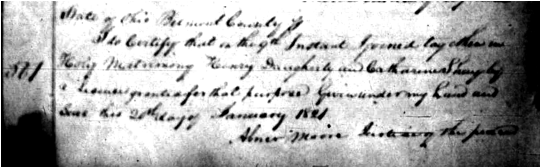 State of Ohio Belmont County ss
I do Certify that on the 9th Instant I joined together in
571 Holy Matrimony Henry Daugherty and Catharine by
a License granted for that purpose Given under my hand and
Seal this 20th day of January 1821
Abner Moore Justice of the peace